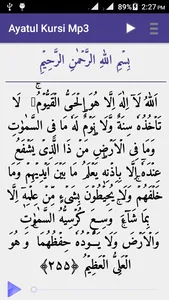 2:27 PM
Ayatul Kursi Mp3
بِسْمِ اللهِ الرَّحْمٰنِ الرَّحِيْمِ
اَللهُ لَآ اِلٰهَ اِلَّا هُوَ اَلْحَىُّ الْقَيُّوْمُ ۚ لَا
تَاْخُذُهٗ سِنَةٌ وَّلَا نَوْمٌ لَهٗ مَا فِي السَّمٰوٰتِ
وَمَا فِي الْاَرْضِ مَنْ ذَا الَّذِيْ يَشْفَعُ
عِنْدَهٗٓ اِلَّا بِاِذْنِهٖ يَعْلَمُ مَا بَيْنَ اَيْدِيْهِمْ وَمَا
خَلْفَهُمْ وَلَا يُحِيْطُوْنَ بِشَيْءٍ مِّنْ عِلْمِهٖٓ اِلَّا
بِمَا شَآءَ ۚ وَسِعَ كُرْسِيُّهُ السَّمٰوٰتِ
وَالْاَرْضَ وَلَا يَـُٔوْدُهٗ حِفْظُهُمَا وَ هُوَ
الْعَلِيُّ الْعَظِيْمُ ﴿۲۵۵﴾